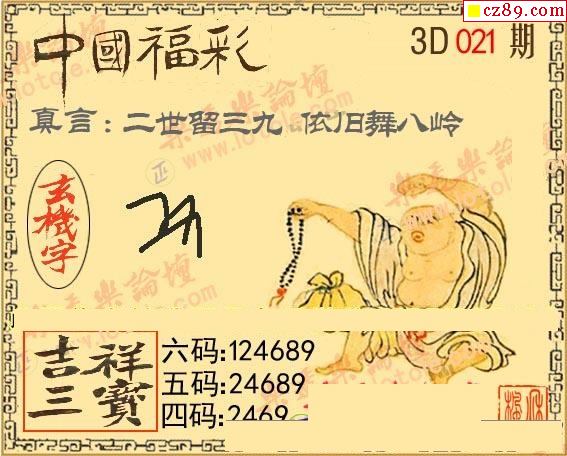 cz89.com
中國福彩
3D 021 期
真言：二世留三九 依旧舞八岭
玄機字
吉祥三寶
六码:124689
五码:24689
四码:2469